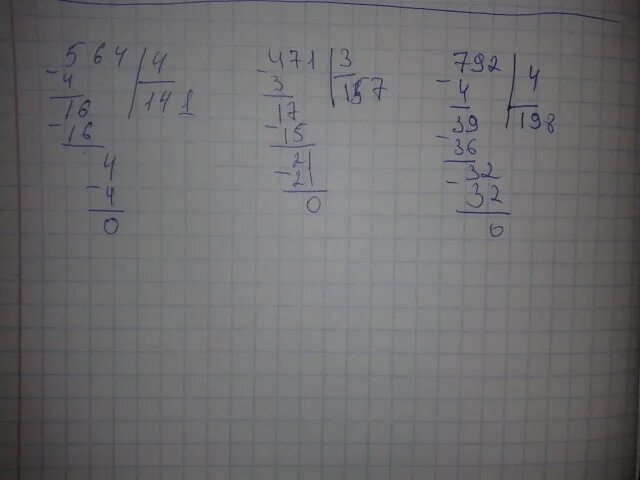 564 4
- 4 141
16
- 16
4
- 4
0
471 3
- 3 157
17
- 15
21
- 21
0
792 4
- 4 198
39
- 36
32
- 32
0